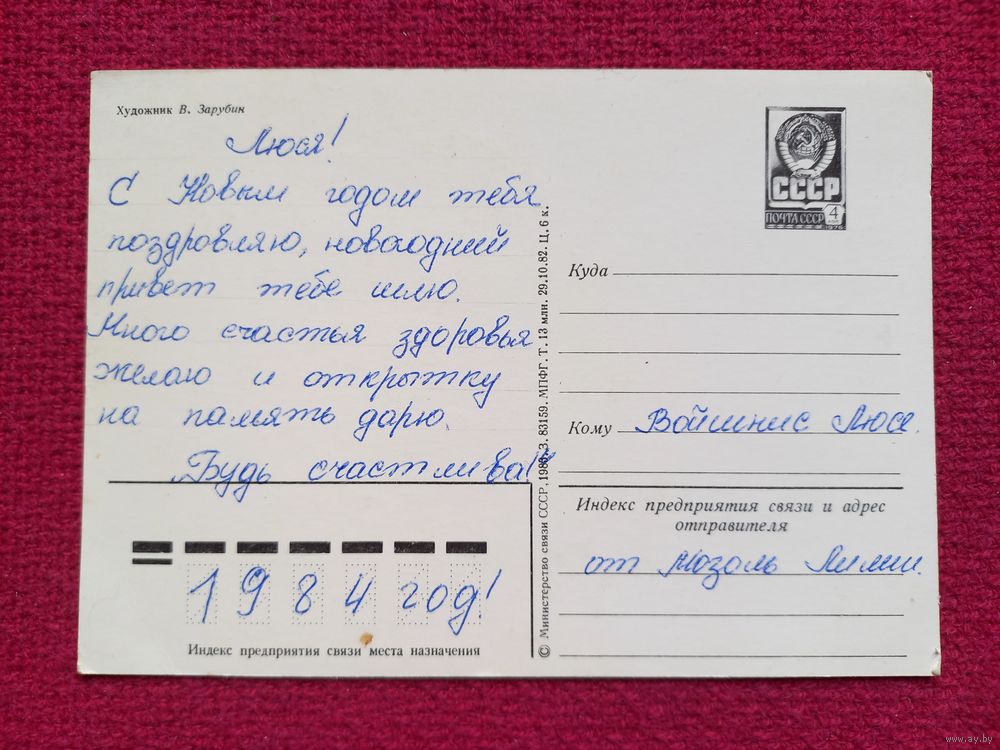 Художник В. Зарубин
Люся!
С Новым годом тебя
поздровляю, новогодний
привет тебе шлю.
Много счастья здоровья
желаю и открытку
на память дарю.
"Будь счастлива!"
1984 год!
Индекс предприятия связи места назначения
© Министерство связи СССР, 1982. З. 83159. МПФГ. Т. 13 млн. 29.10.82. Ц. 6 к.
СССР
ПОЧТА СССР
4
КОП
1976
Куда
Кому Войшнис Люсе.
Индекс предприятия связи и адрес
отправителя
от Мозоль Лилии.
www.ay.by